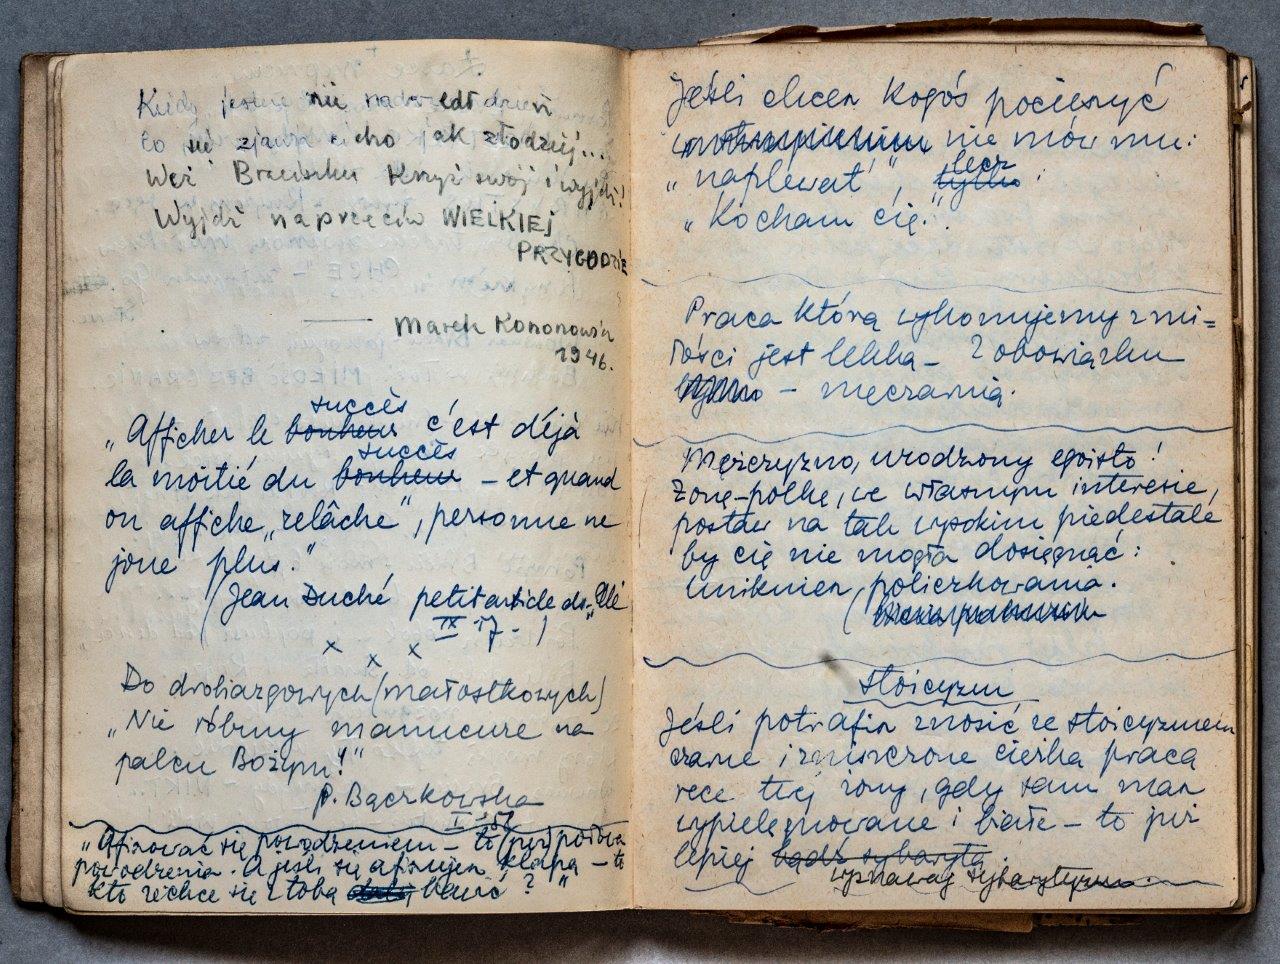 Kiedy jeszcze nie nadszedł dzień
co się zjawia cicho jak złodziej...
Weź Braciszku Krzyż swój i wyjdź!
Wyjdź naprzeciw WIELKIEJ
PRZYGODZIE
Marek Kononowicz
1946.
succès
„Afficher le bonheur c'est déjà
succès
la moitié du bonheur – et quand
on affiche „relâche", personne ne
joue plus."
(Jean Duché petit article ds „Elle
IX 57 - )
x x x
Do drobiazgowych (małostkowych)
„Nie róbmy manucure na
palcu Bożym!"
p. Bączkowska
I 58
„Afiszować się powodzeniem – to (już) połowa
powodzenia. A jeśli się afiszujesz klapą – to
kto zechce się z tobą bawić?"
Jeśli chcesz kogoś pocieszyć
w nie mów mu:
lecz
„naplewat'", tylko:
„Kocham cię."
Praca którą wykonujemy z mi=
łości jest lekką – z obowiązku
– męczarnią.
Mężczyzno, urodzony egoisto!
Żonę-polkę, we własnym interesie,
postaw na tak wysokim piedestale
by cię nie mogła dosięgnąć:
unikniesz policzkowania.
(
Stoicyzm
Jeśli potrafisz znosić ze stoicyzmem
czarne i zniszczone ciężką pracą
ręce twej żony, gdy sam masz
wypielęgnowane i białe – to już
lepiej bądź sybarytą.
wyznawaj sybarytyzm.